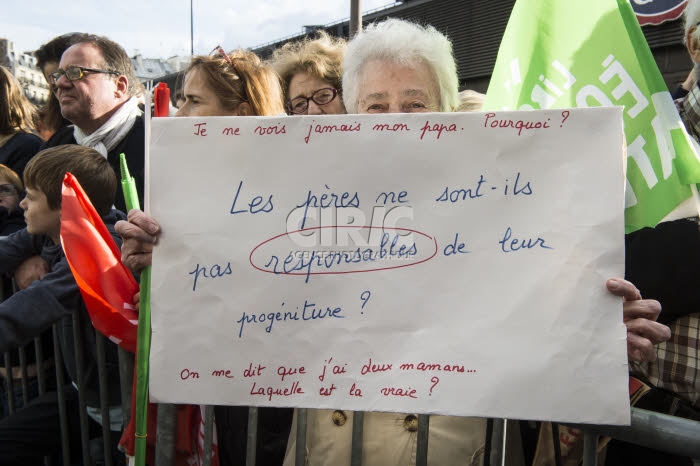 Je ne vois jamais mon papa. Pourquoi ?
Les pères ne sont-ils
pas responsables de leur
progéniture ?
On me dit que j'ai deux mamans...
Laquelle est la vraie ?
CIRIC